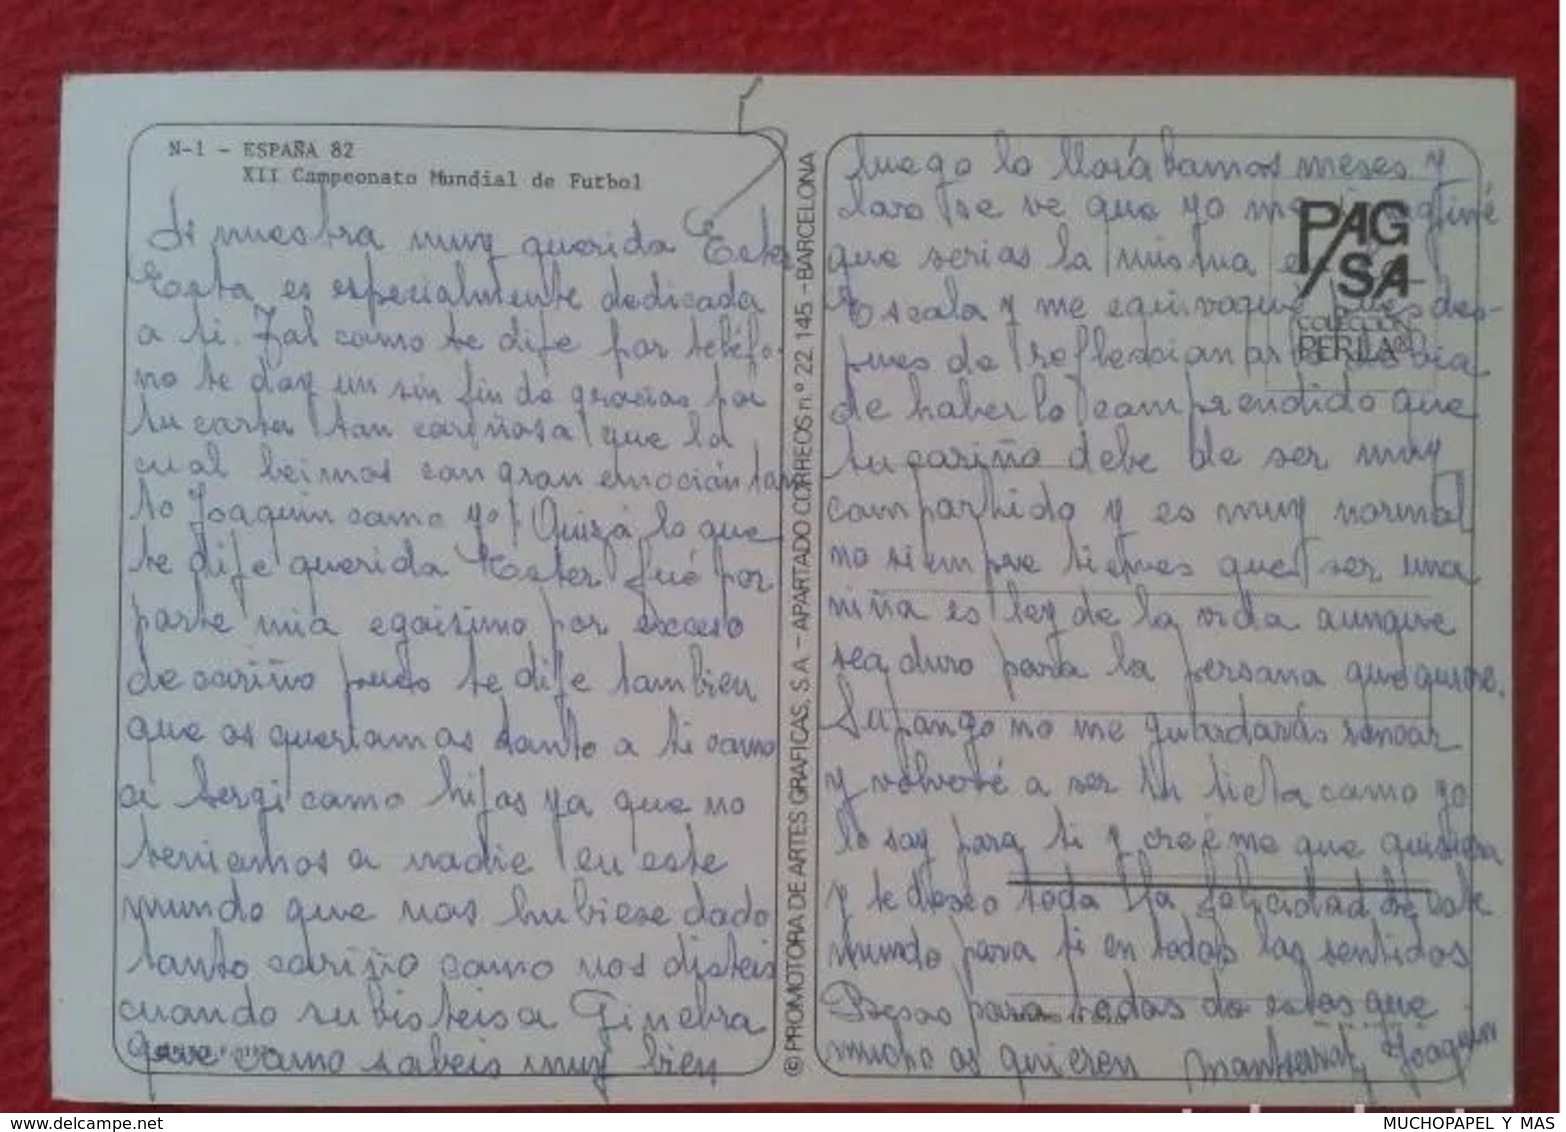 N-1 - ESPAÑA 82
XII Campeonato Mundial de Futbol
Si nuestra muy querida Ester
Esta es especialmente dedicada
a ti. Tal como te dije por teléfo-
no te doy un sin fin de gracias por
tu carta tan cariñosa que la
cual leimos con gran emoción tan
to Joaquin como yo! Quizá lo que
te dije querida Ester fué por
parte mia egoisimo por exceso
de cariño pues te dije tambien
que os queriamos tanto a ti como
a Sergi como hijos ya que no
teniamos a nadie en este
mundo que nos hubiese dado
tanto cariño como nos disteis
cuando subisteis a Ginebra
que como sabeis muy bien
© PROMOTORA DE ARTES GRAFICAS, S.A. - APARTADO CORREOS n.º 22.145 - BARCELONA
luego lo llorábamos meses y
claro se ve que yo me imaginé
que serias la misma en
Escala y me equivoqué pues des-
pues de reflexionar
de haberlo comprendido que
tu cariño debe de ser muy
compartido y es muy normal
no siempre tienes que ser una
niña es ley de la vida aunque
sea duro para la persona que quiere.
Supongo no me guardarás rencor
y volveré a ser tu tieta como yo
lo soy para ti y creéme que quisiera
y te deseo toda la felicidad de este
mundo para ti en todos los sentidos
Besos para todos de estos que
mucho os quieren Montserrat y Joaquin
PAGSA
COLECCION
PERLA®
MUCHOPAPEL Y MAS